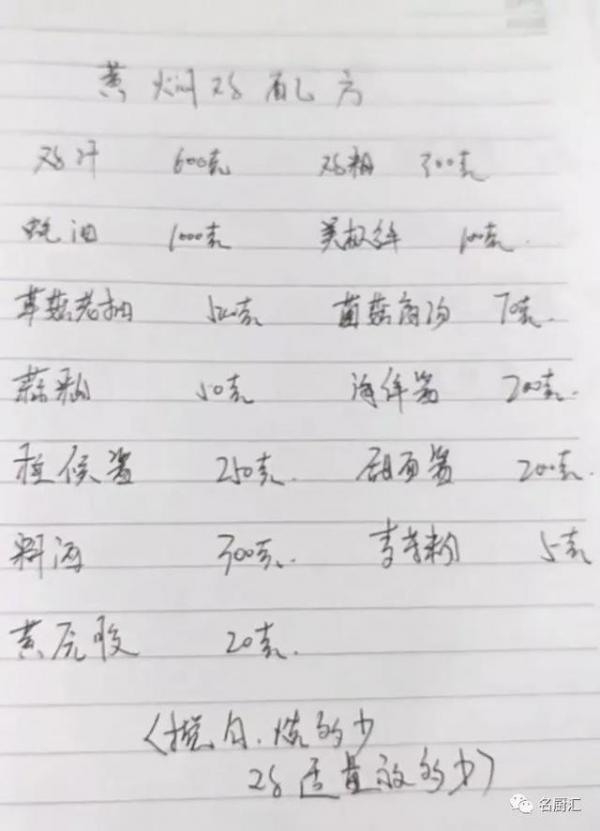 黄焖鸡配方
鸡汁 600克 鸡粉 300克
蚝油 1000克 美极鲜 100克.
草菇老抽 500克 菌菇高汤 70克.
蒜粉 50克 海鲜酱 200克.
柱候酱 250克. 甜面酱 200克.
料酒 300克. 麦芽粉 5克
黄原胶 20克.
(按自.烧的少
鸡适量放的少)
名厨汇